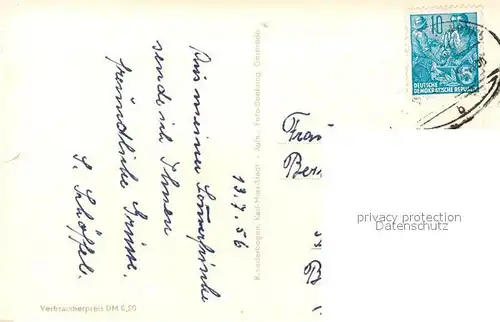 13.7.56
Aus meiner Sommerfrische
sende ich Ihnen
freundliche Grüsse.
S. Schöffel.
Verbraucherpreis DM 0,20
Karl-Marx-Stadt - Aufn.: Foto
10
DEUTSCHE
DEMOKRATISCHE REPUBLIK
Frau
Ber
B
privacy protection
Datenschutz